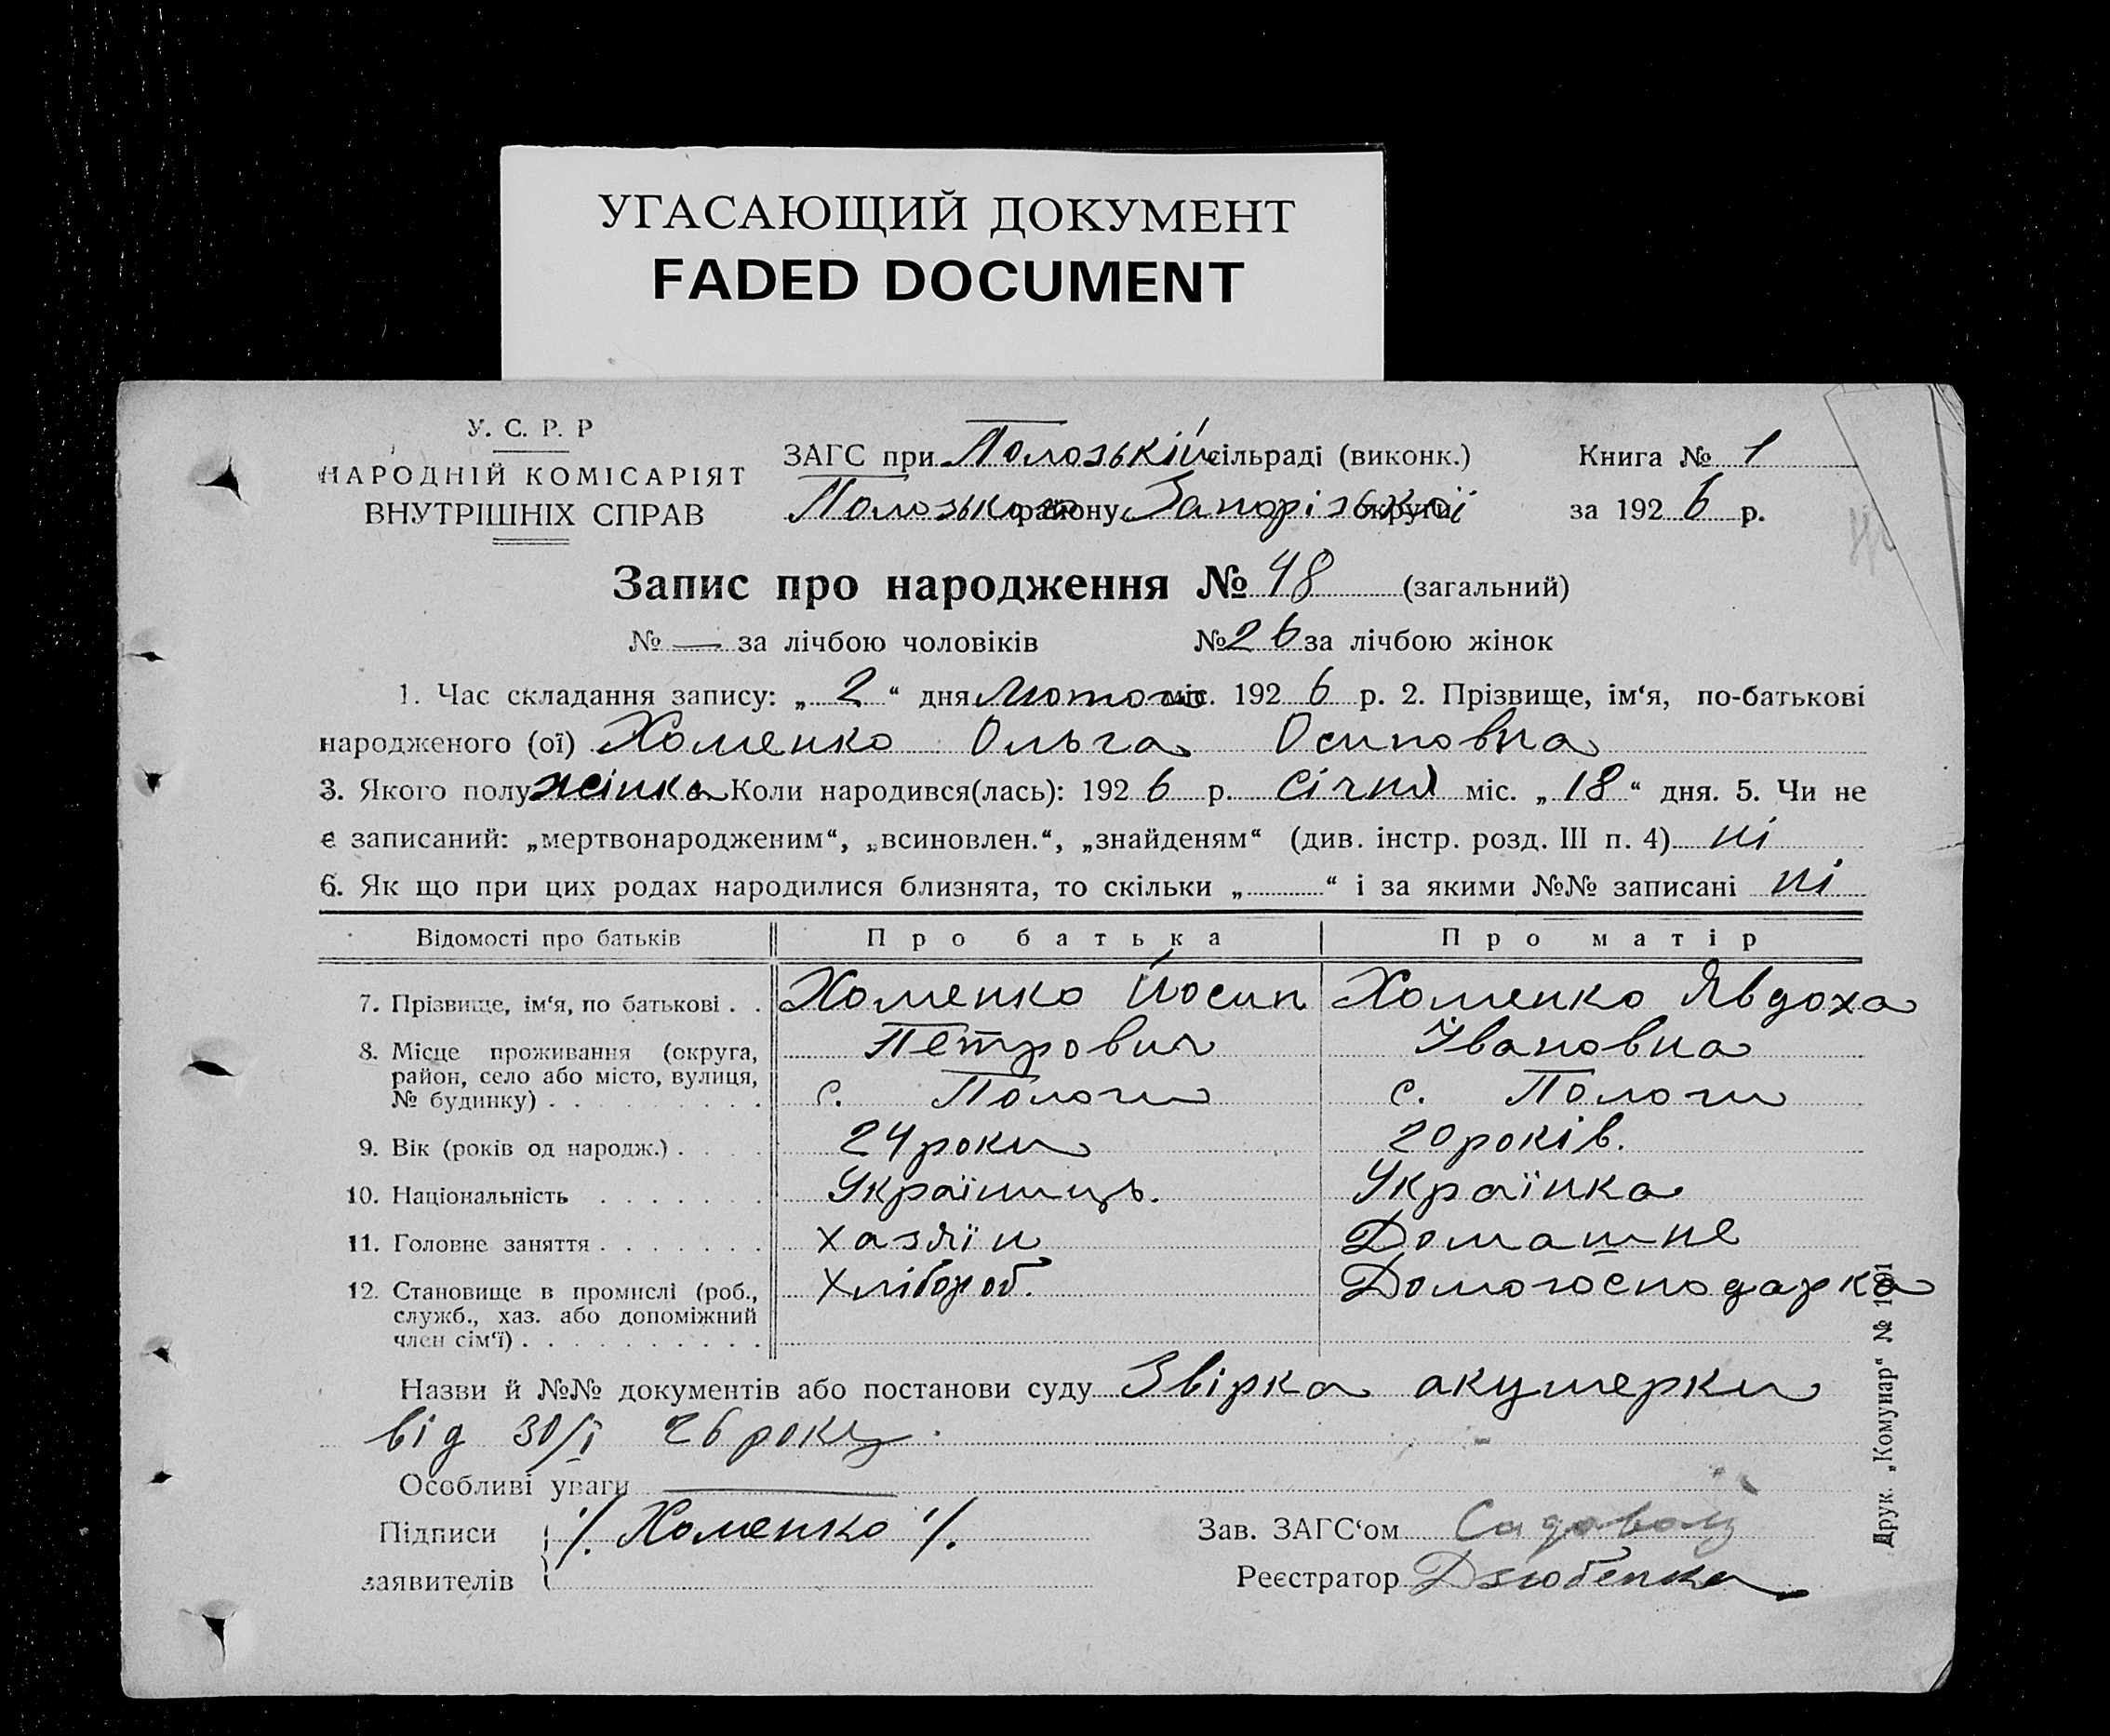 УГАСАЮЩИЙ ДОКУМЕНТ
FADED DOCUMENT
У. С. Р. Р
НАРОДНІЙ КОМІСАРІЯТ
ВНУТРІШНІХ СПРАВ
ЗАГС при Полозькій сільраді (виконк.)
Полозького району Запорізької округи
Книга № 1
за 1926 р.
Запис про народження № 48 (загальний)
№ — за лічбою чоловіків № 26 за лічбою жінок
1. Час складання запису: „ 2 “ дня Лютого міс. 1926 р. 2. Прізвище, ім‘я, по-батькові
народженого (ої) Хоменко Ольга Осиповна
3. Якого полу жінка Коли народився(лась): 1926 р. Січня міс. „ 18 “ дня. 5. Чи не
є записаний: „мертвонародженим“, „всиновлен.“, „знайденям“ (див. інстр. розд. III п. 4) ні
6. Як що при цих родах народилися близнята, то скільки „ “ і за якими №№ записані ні
Відомості про батьків Про батька Про матір
7. Прізвище, ім‘я, по батькові . . Хоменко Йосип Хоменко Явдоха
Петрович Івановна
8. Місце проживання (округа,
район, село або місто, вулиця,
№ будинку) . . . . . . . . . с. Пологи с. Пологи
9. Вік (років од народж.) . . . . 24 роки 20 років.
10. Національність . . . . . . Українець. Українка
11. Головне заняття . . . . . . . хазяїн Домашнє
12. Становище в промислі (роб.,
служб., хаз. або допоміжний
член сім‘ї) . . . . . . . . . . Хлібороб. Домогосподарка
Назви й №№ документів або постанови суду Звірка акушерки
від 30/I 26 року.
Особливі уваги —
Підписи
заявителів /. Хоменко /.
Зав. ЗАГС‘ом Садовой
Реєстратор Дзюбенко
Друк. „Комунар“ № 1191